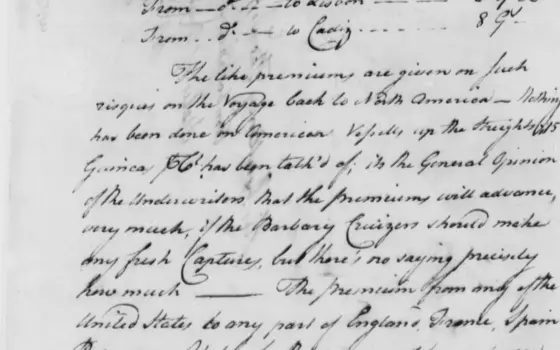 From — do — to Lisbon — —
From .. do. — to Cadiz - - - - - 8 Gs.
The like premiums are given on such
risques on the Voyage back to North America — Nothing
has been done on American Vessells up the Streights, 15
Guineas has been talk'd of; its the General Opinion
of the Underwriters, that the premiums will advance,
very much, if the Barbary Cruizers should make
any fresh Captures, but there's no saying precisely
how much ——— The premium from any of the
United States to any part of England, France, Spain